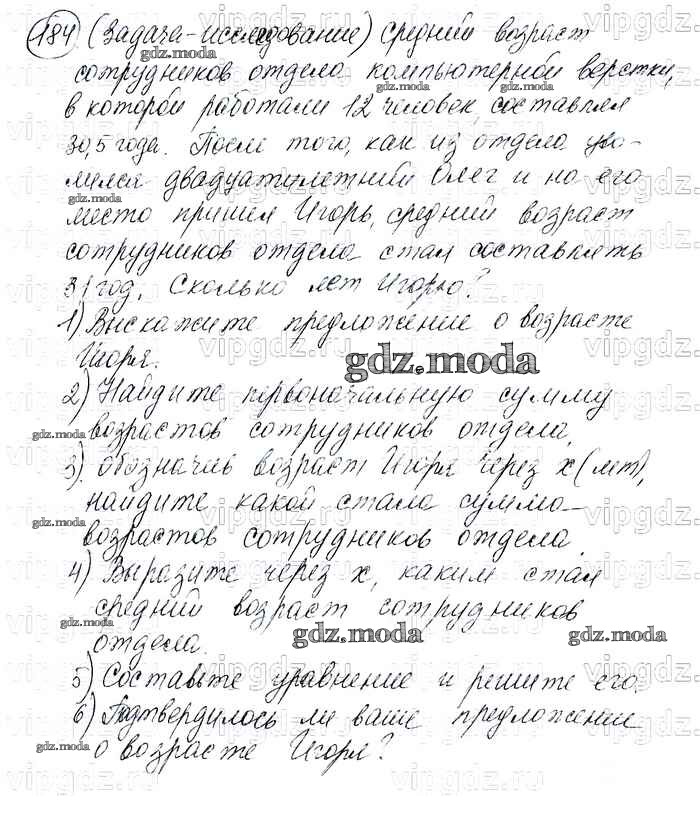 184 (Задача-исследование) Средний возраст
сотрудников отдела компьютерной верстки,
в которой работали 12 человек, составлял
30,5 года. После того, как из отдела уво-
лился двадцатилетний Олег и на его
место пришел Игорь, средний возраст
сотрудников отдела стал составлять
31 год. Сколько лет Игорю?
1) Выскажите предложение о возрасте
Игоря.
gdz.moda
2) Найдите первоначальную сумму
возрастов сотрудников отдела.
3) обозначив возраст Игоря через x (лет),
найдите какой стала сумма
возрастов сотрудников отдела.
4) Выразите через x, каким стал
средний возраст сотрудников
отдела.
gdz.moda
5) Составьте уравнение и решите его.
6) Подтвердилось ли ваше предложение
о возрасте Игоря?